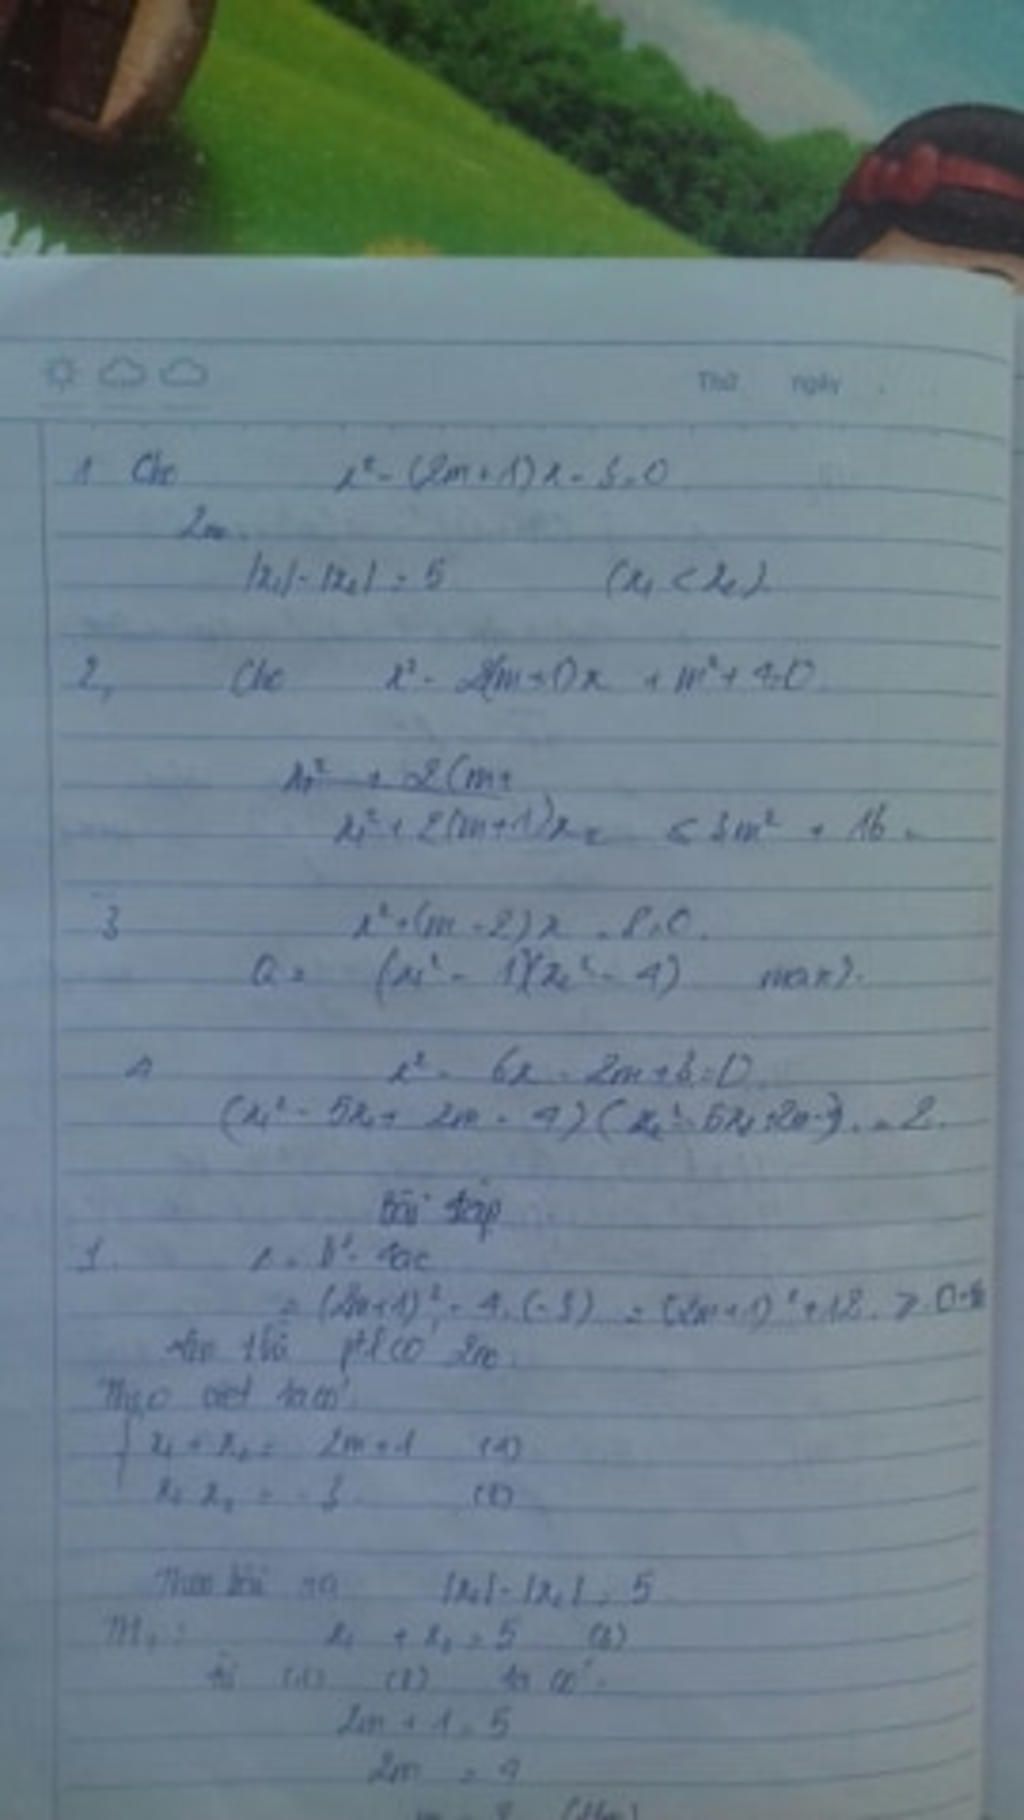 Thứ ngày
1 Cho x² - (2m+1)x - 3 = 0
2m.
|x₁| - |x₂| = 5 (x₁ < x₂)
2, Cho x² - 2(m+1)x + m² + 4 = 0
x₁² + 2(m+
x₁² + 2(m+1)x₂ ≤ 3m² + 16
3 x² + (m - 2)x - 8 = 0.
Q = (x₁² - 1)(x₂² - 4) max
x² - 6x - 2m + 3 = 0
(x₁² - 5x₁ + 2m - 4)(x₂² - 5x₂ + 2m - 4) = 2.
Bài tập
1. = b² - 4ac
= (2m+1)² - 4.(-3) = (2m+1)² + 12 > 0
pt có 2no
Theo viet ta có
x₁ + x₂ = 2m+1 (1)
x₁ x₂ = -3 (2)
Theo bài ra |x₁| - |x₂| = 5
x₁ + x₂ = 5 (3)
từ (1) (3) ta có
2m + 1 = 5
2m = 4